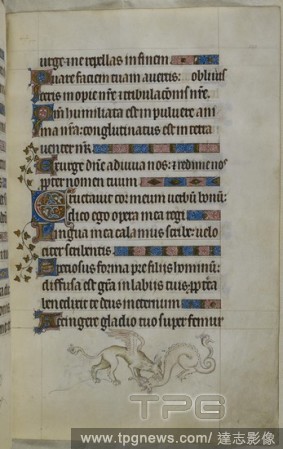 urge et ne repellas in finem
Quare faciem tuam avertis: obliuis
ceris inopie nre et tribulacõis nre.
Qm humiliata est in puluere ani
ma nra: conglutinatus est in terra
uenter nr.
Exurge dñe adiuua nos: et redime nos
ppter nomen tuum
Eructauit cor meum uerbũ bonũ:
dico ego opera mea regi
Lingua mea calamus scribe: uelo
citer scribentis
Speciosus forma pre filiis hominũ:
diffusa est grã in labiis tuis: pptea
benedixit te deus in eternum
Accingere gladio tuo super femur
TPG
www.tpgnews.com/ 達志影像